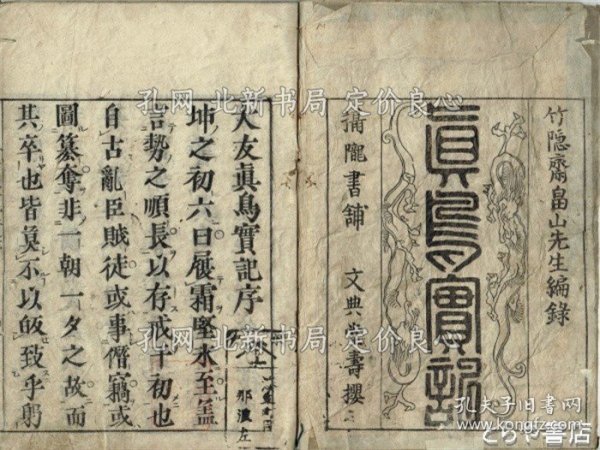 竹隠齋畠山先生編錄
眞鳥實記
書舗 文典堂壽櫻
大友眞鳥實記序
坤之初六曰履霜堅氷至蓋
言勢之順長以存戒于初也
自古亂臣賊徒或事僭竊或
圖簒奪非一朝一夕之故而
其卒也皆莫不以敀致乎躬
那波左
孔网 北新书局 定价良心
孔网 北新书局 定价良心
孔夫子旧书网
kongfz.com
とらや書店